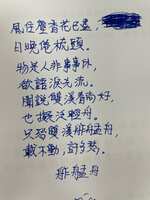 風住塵香花已盡，
日晚倦梳頭。
物是人非事事休，
欲語淚先流。
聞說雙溪春尚好，
也擬泛輕舟。
只恐雙溪舴艋舟，
載不動，許多愁。
舴艋舟